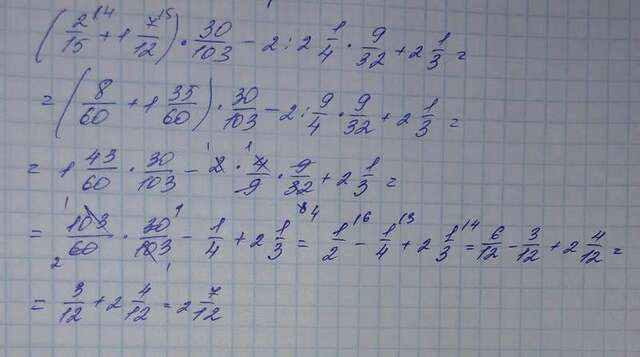 (2/15 + 1 7/12) · 30/103 - 2 : 2 1/4 · 9/32 + 2 1/3 =
= (8/60 + 1 35/60) · 30/103 - 2 : 9/4 · 9/32 + 2 1/3 =
= 1 43/60 · 30/103 - 2 · 4/9 · 9/32 + 2 1/3 =
= 103/60 · 30/103 - 1/4 + 2 1/3 = 1/2 - 1/4 + 2 1/3 = 6/12 - 3/12 + 2 4/12 =
= 3/12 + 2 4/12 = 2 7/12